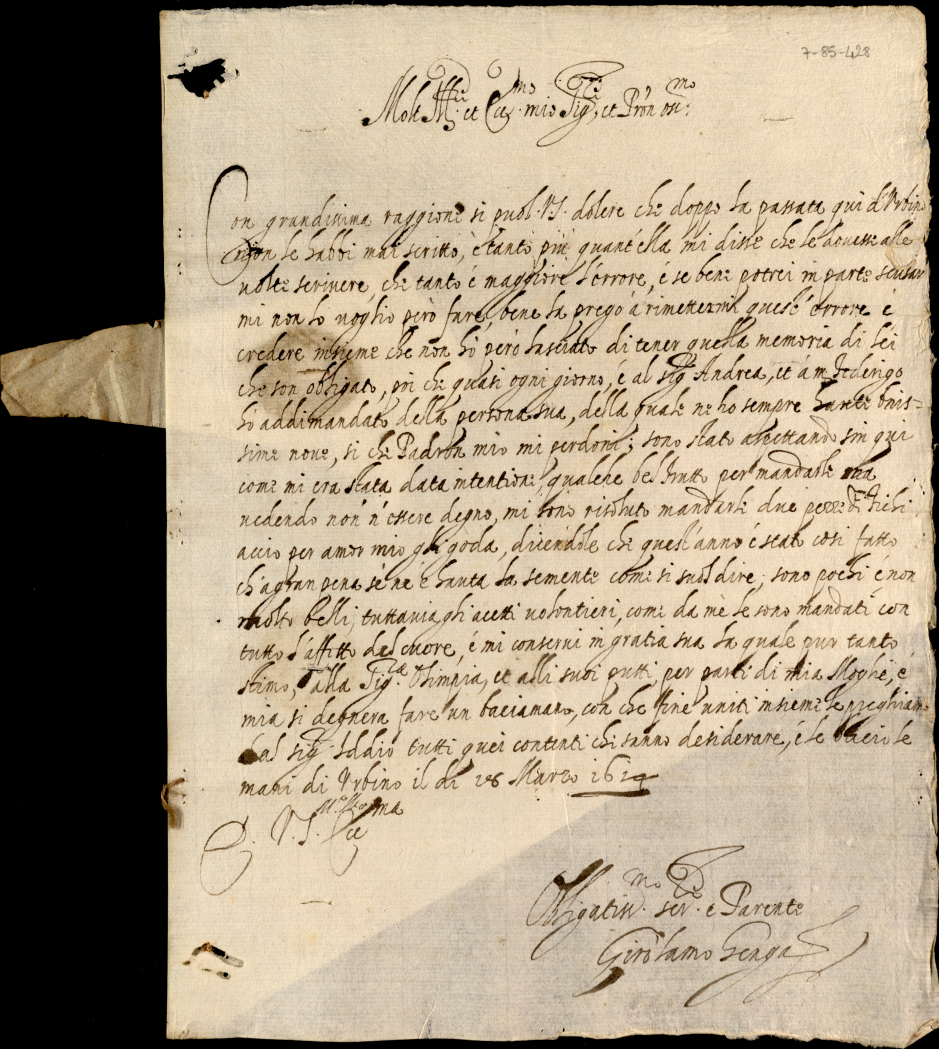 7-85-428
Molt Mag.ce et Ecc.mo mio Sig.re et Pron oss.mo
Con grandissima raggione si puol V.S. dolere che doppo la passata qui d'Urbino
non le habbi mai scritto, è tanto piu quant'ella mi disse che le dovesse alle
volte scrivere, che tanto é maggiore l'errore, e se bene potrei in parte scusar
mi non lo voglio però fare, bene la prego á rimettermi quest'errore é
credere insieme che non hò però lasciato di tener quella memoria di lei
che son obligato, poi che quasi ogni giorno, e al sig.r Andrea, et á m Federigo
hò addimandato della persona sua, della quale ne ho sempre haute bonis=
sime nove, si che Padron mio mi perdoni; sono stato aspettando sin qui
come mi era stata data intentione, qualche bel frutto per mandarle ma
vedendo non n'essere degno, mi sono risoluto mandarle due pezze di Fichi
acciò per amor mio gli goda, dicendole che quest'anno é stato così fatto
ch'a gran pena se ne è hauta la semente come si suol dire; sono pochi é non
molto belli, tuttavia gli accetti volontieri, come da mè le sono mandati con
tutto l'affetto del cuore, é mi conservi in gratia sua la quale pur tanto
stimo, alla Sig.ra Olimpia, et alli suoi putti per parti di mia Moglie, é
mia si degnera fare un baciamano, con che fine uniti insieme le preghiamo
dal sig.r Iddio tutti quei contenti che sanno desiderare, é le bacio le
mani di Urbino il di 28 Marzo 1614
D. V.S. M.to Ecc.ma
Obligatiss.mo ser.re e Parente
Girolamo Genga